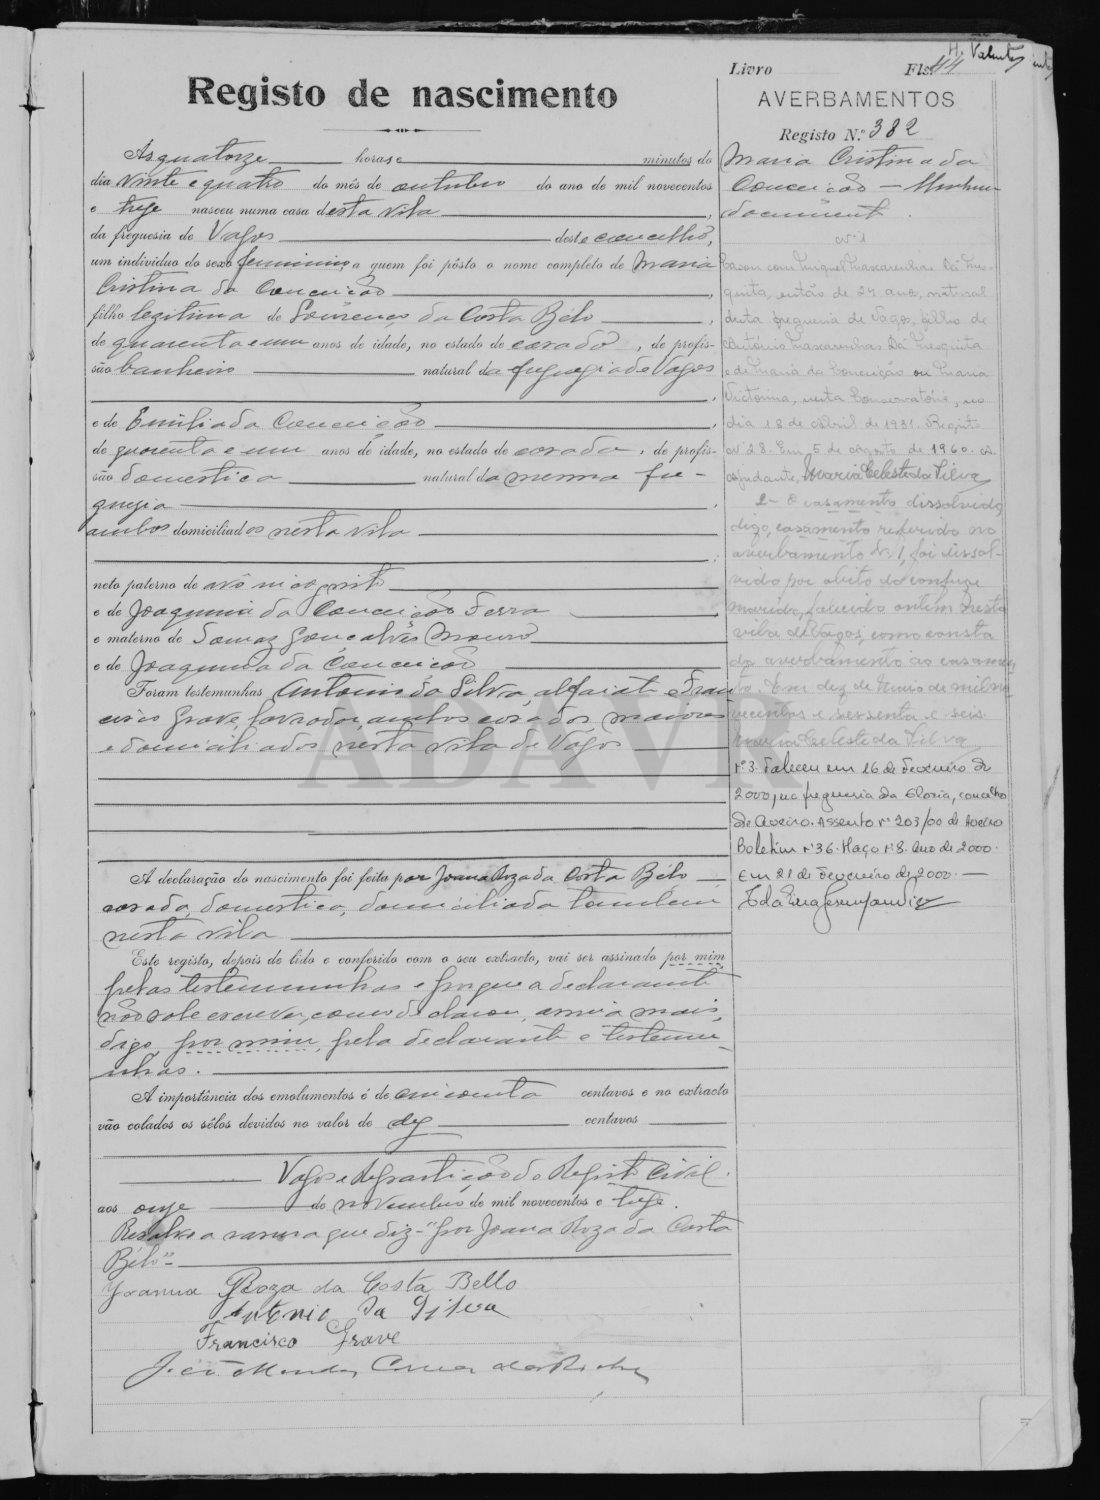 H. Valente
Livro Fls. 44
Registo de nascimento
As quatorze horas e minutos do
dia vinte e quatro do mês de outubro do ano de mil novecentos
e treze nasceu numa casa desta vila,
da freguesia de Vagos deste concelho,
um individuo do sexo feminino, a quem foi pôsto o nome completo de Maria
Cristina da Conceição,
filho legitima de Lourenço da Costa Bélo,
de quarenta e um anos de idade, no estado de casado, de profis-
são banheiro natural da freguezia de Vagos
,
e de Emilia da Conceição,
de quarenta e um anos de idade, no estado de casada, de profis-
são domestica natural da mesma fre-
guezia
ambos domiciliados nesta vila
;
neto paterno de avô incognito
e de Joaquina da Conceição Ferra
e materno de Tomaz Gonçalves Mouro
e de Joaquina da Conceição
Foram testemunhas Antonio da Silva, alfaiate e Fran
cisco Grave, lavrador, ambos casados, maiores
e domiciliados nesta vila de Vagos
A declaração do nascimento foi feita por Joana Roza da Costa Bélo
casada, domestica, domiciliada tambem
nesta vila
Este registo, depois de lido e conferido com o seu extracto, vai ser assinado por mim,
pelas testemunhas e porque a declarante
não sabe escrever, como declarou, assina mais,
digo, por mim, pela declarante e testemu-
nhas.
A importância dos emolumentos é de cincoenta centavos e no extracto
vão colados os sêlos devidos no valor de dez centavos
Vagos e Repartição do Registo Civil.
aos onze de novembro de mil novecentos e treze.
Resalvo a rasura que diz-"por Joana Roza da Costa
Bélo"-
Joanna Roza da Costa Bello
Antonio da Silva
Francisco Grave
AVERBAMENTOS
Registo N.º 382
Maria Cristina da
Conceição — Nenhum
documento.
Nº 1
Casou com Miguel Mascarenhas Dá Mes-
quita, então de 27 anos, natural
desta freguesia de Vagos, filho de
António Mascarenhas Dá Mesquita
e de Maria da Conceição ou Maria
Victorina, nesta Conservatória, no
dia 18 de Abril de 1931. Registo
nº 28. Em 5 de agosto de 1960. A
ajudante, Maria Celeste da Silva
2- O casamento dissolvido,
digo, casamento referido no
averbamento nº 1, foi dissol-
vido por óbito do conjuge
marido, falecido ontem nesta
vila de Vagos, como consta
do averbamento ao casamen
to. Em dez de Maio de mil no
vecentos e sessenta e seis.
Maria Celeste da Silva
Nº 3. Faleceu em 16 de Fevereiro de
2000, na freguesia da Glória, concelho
de Aveiro. Assento nº 203/00 de Aveiro
Boletim nº 36. Maço nº 8. Ano de 2000.
Em 21 de Fevereiro de 2000. —
ADAVR